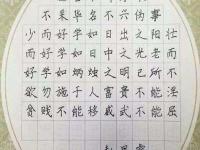 不采华名不兴伪事
少而好学如日出之阳壮
而好学如日中之光老而
好学如炳烛之明己所不
欲勿施于人富贵不能淫
贫贱不能移威武不能屈